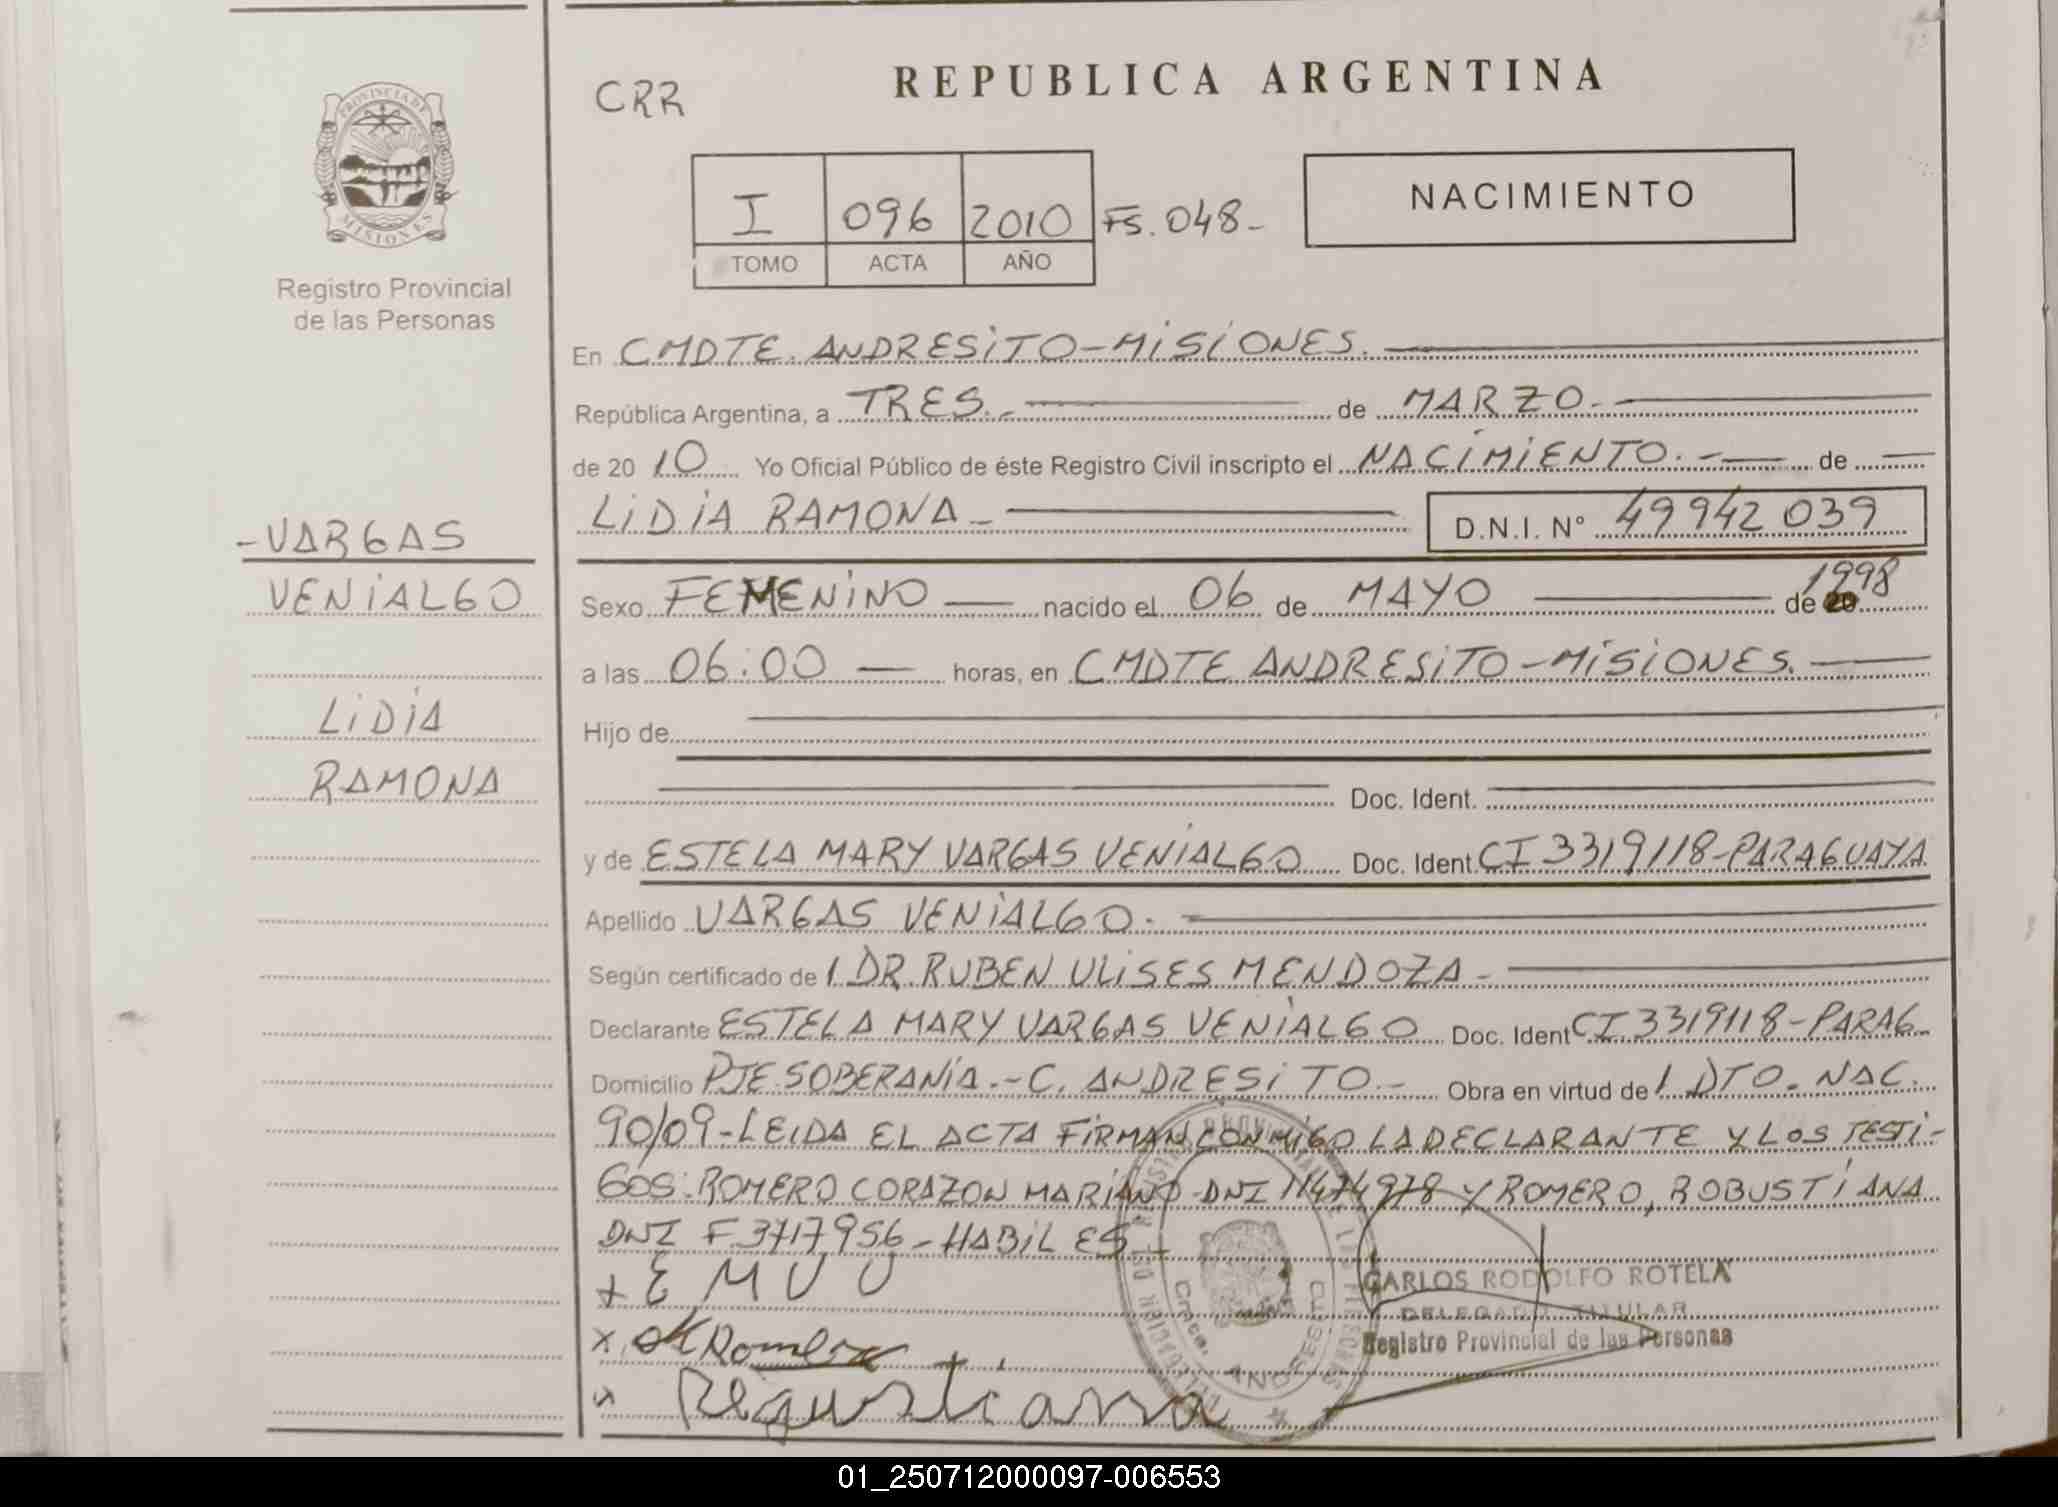 CRR
REPUBLICA ARGENTINA
PROVINCIA DE
MISIONES
I 096 2010 FS. 048-
TOMO ACTA AÑO
NACIMIENTO
Registro Provincial
de las Personas
En CMDTE. ANDRESITO-MISIONES.
República Argentina, a TRES.- de MARZO.-
de 20 10 Yo Oficial Público de éste Registro Civil inscripto el NACIMIENTO.- de
LIDIA RAMONA- D.N.I. N° 49942039
-VARGAS
VENIALGO
LIDIA
RAMONA
Sexo FEMENINO nacido el 06 de MAYO de 20 1998
a las 06:00 horas, en CMDTE ANDRESITO-MISIONES.
Hijo de
Doc. Ident.
y de ESTELA MARY VARGAS VENIALGO Doc. Ident. CI 3319118-PARAGUAYA
Apellido VARGAS VENIALGO.
Según certificado de 1. DR. RUBEN ULISES MENDOZA-
Declarante ESTELA MARY VARGAS VENIALGO Doc. Ident CI 3319118-PARAG.
Domicilio PJE. SOBERANÍA.-C. ANDRESITO.- Obra en virtud de 1. DTO. NAC.
90/09-LEIDA EL ACTA FIRMAN CONMIGO LA DECLARANTE Y LOS TESTI-
GOS: ROMERO CORAZON MARIANO-DNI 11474978 Y ROMERO, ROBUSTIANA
DNI F3717956-HABILES
+ E M V V
x Romero
x
CARLOS RODOLFO ROTELA
DELEGADO TITULAR
Registro Provincial de las Personas
Cmdte. ANDRESITO
01_250712000097-006553